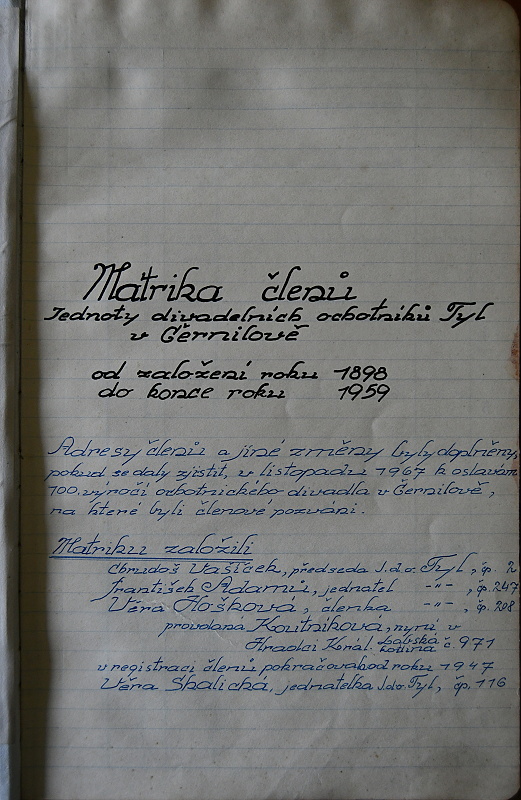 Matrika členů
Jednoty divadelních ochotníků Tyl
v Černilově
od založení roku 1898
do konce roku 1959
Adresy členů a jiné změny byly doplněny,
pokud se daly zjistit, v listopadu 1967 k oslavám
100. výročí ochotnického divadla v Černilově,
na které byli členové pozváni.
Matriku založili
Chrudoš Vašíček, předseda J.d.o. Tyl, čp. 2
František Adamů, jednatel -"- , čp. 247
Věra Hošková, členka -"- , čp. 208
provdaná Koutníková, nyní v
Hradci Král. Labská kotlina č. 971
v registraci členů pokračoval od roku 1947
Věra Skalická, jednatelka J.d.o. Tyl, čp. 116